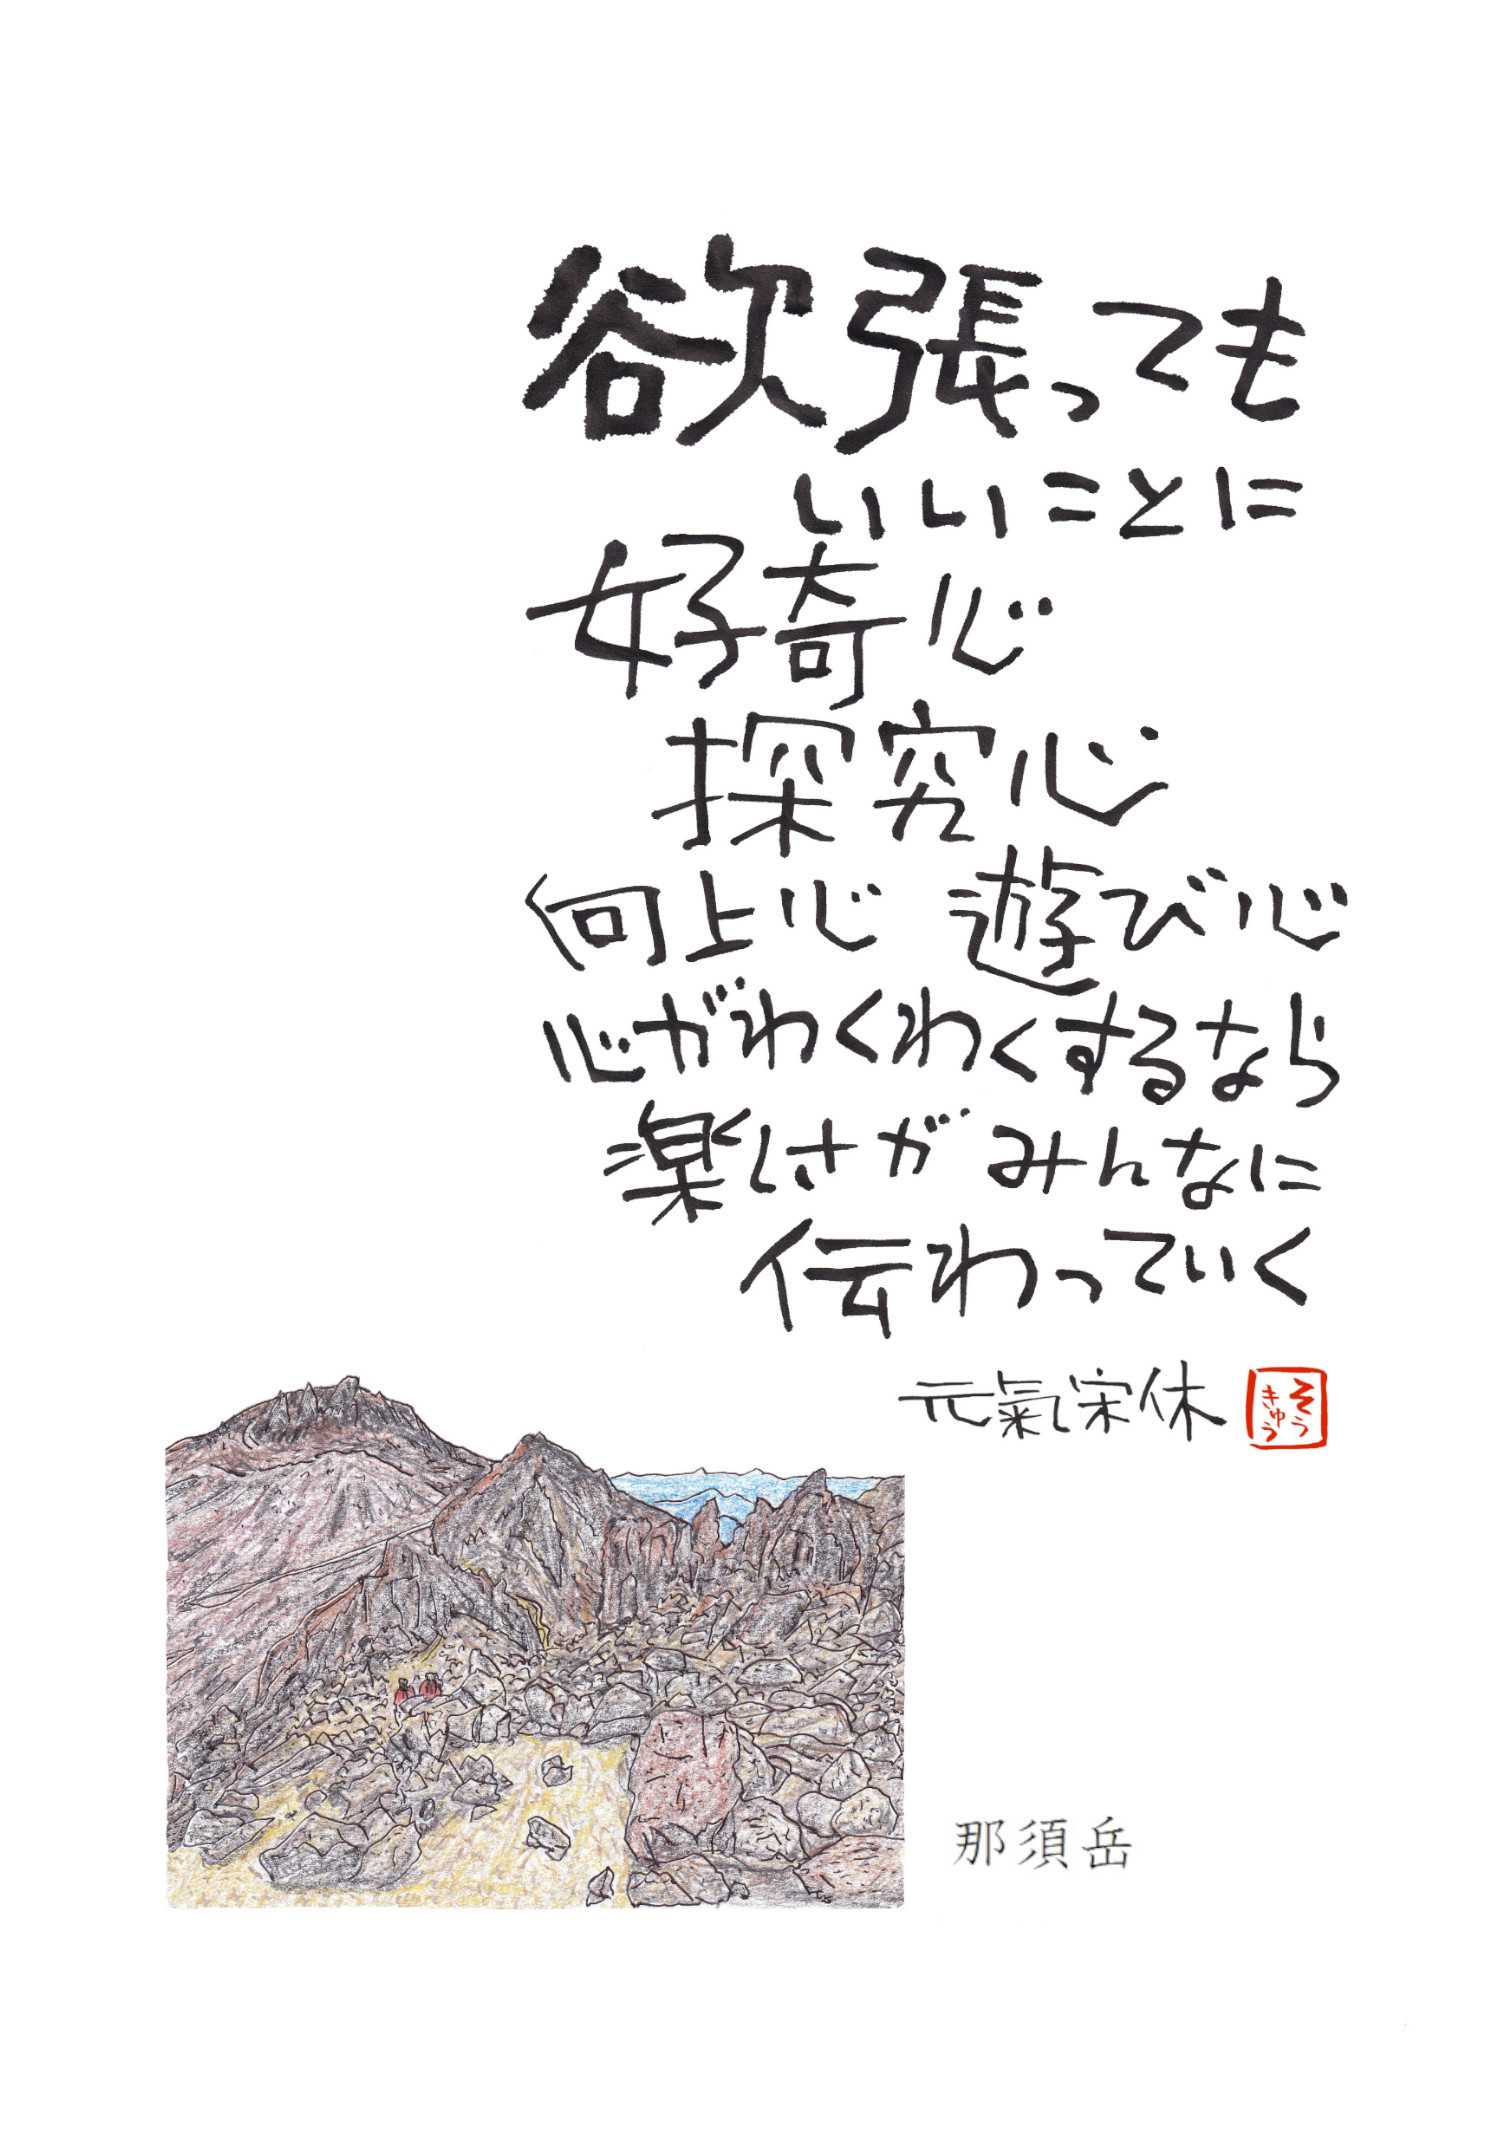 欲張っても
いいことに
好奇心
探究心
向上心 遊び心
心がわくわくするなら
楽しさがみんなに
伝わっていく
元氣宋休
そうきゅう
那須岳